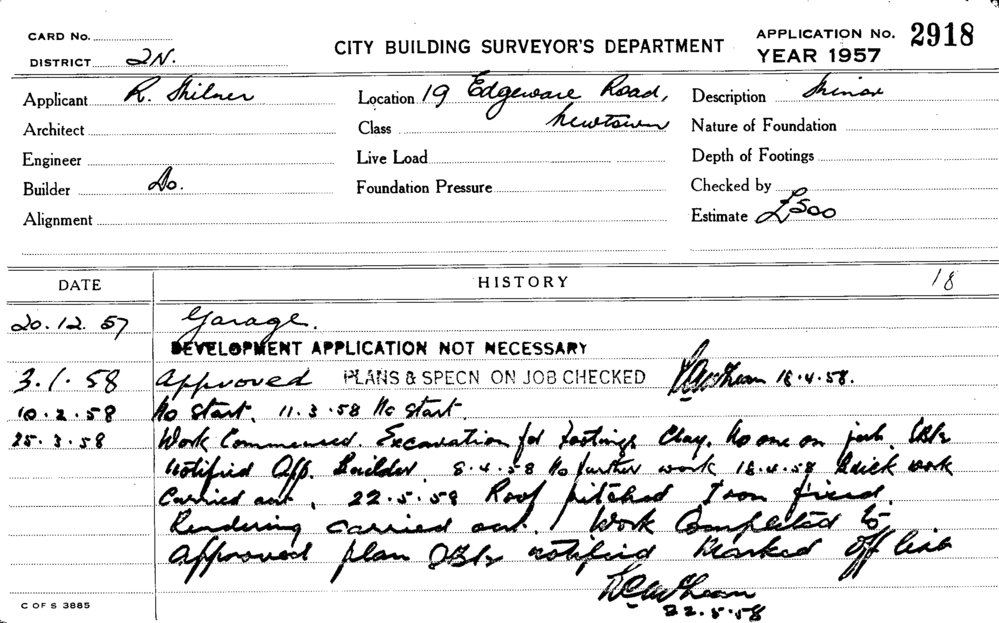 CARD No.
DISTRICT 2N.
CITY BUILDING SURVEYOR'S DEPARTMENT
APPLICATION No. 2918
YEAR 1957
Applicant R.
Location 19 Edgeware Road,
Description Minor
Architect
Class Newtown
Nature of Foundation
Engineer
Live Load
Depth of Footings
Builder Do.
Foundation Pressure
Checked by
Alignment
Estimate £500
DATE
HISTORY
18
20.12.57 Garage.
DEVELOPMENT APPLICATION NOT NECESSARY
3.1.58 Approved PLANS & SPECN ON JOB CHECKED 18.4.58.
10.2.58 No start. 11.3.58 No start.
25.3.58 Work Commenced. Excavation for footings Clay. No one on job.
notified Off. Builder. 8.4.58 No further work 18.4.58 Brick work
Carried out. 22.5.58 Roof pitched Iron fixed.
Rendering carried out. Work Completed to
approved plan notified Marked off list
22.5.58
C OF S 3885